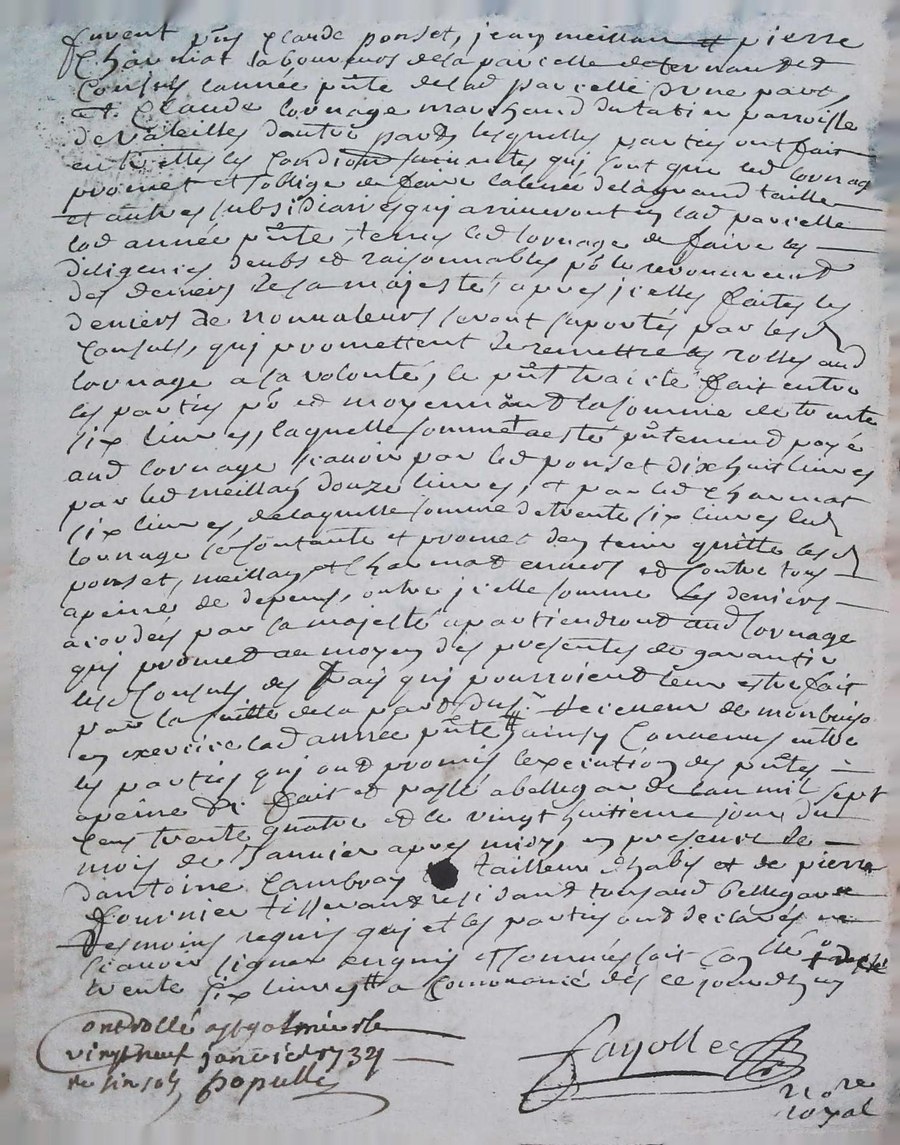 furent pñs Claude ponset, jean meillan et pierre
Charmat laboureurs de la parcelle de
Consuls lannée pñte de lad parcelle dune part,
et Claude lounage marchand du parroisse
de Valeilles dautre part, lesquelles parties ont fait
les suiuantes qui sont que led lounage
promet et soblige de faire la leuée de la grand taille
et autres subsidiaires qui arriueront en lad parcelle
lad année pñte, led lounage de faire les
diligences deubs et raisonnables pr le recouurement
des deniers de sa majesté, apres jcelles faites les
deniers de nonualeurs seront suportés par lesd
Consuls, qui promettent de remettre les rolles aud
lounage a la volonté, le pñt traicté fait entre
les parties pr et moyennant la somme de trente
six liures, laquelle somme a esté pñtement payé
aud lounage scauoir par led ponset dix huit liures
par led meillan douze liures, et par led Charmat
six liures, de laquelle somme de trente six liures led
lounage se contante et promet den tenir quitte lesd
ponset, meillan et Charmat enuers et contre tous
apeine de depens, outre jcelle somme les deniers
acordés par sa majesté apartiendront aud lounage
qui promet au moyen des presentes de garantir
lesd Consuls des frais qui pourroient leur estre fait
par la faute de la part du sr Receueur de monbrison
en exercice lad année pñte ainsy Conuenus entre
les parties qui ont promis lexecution des pñtes
apeine &c fait et passé a bellegarde lan mil sept
Cens trente quatre et le vingt huitieme jour du
mois de Januier apres midy, en presence de
dantoine Cambray tailleur dhabis et de pierre
fournier tisserand residant tous aud bellegarde
tesmoins requis qui et les parties ont declarés ne
scauoir signer enquis et sommés soit
trente six liures a ce jourdhuy
Controllé a St galmier le
vingt neuf janvier 1734
re six sols populle
fayolle
nore
royal